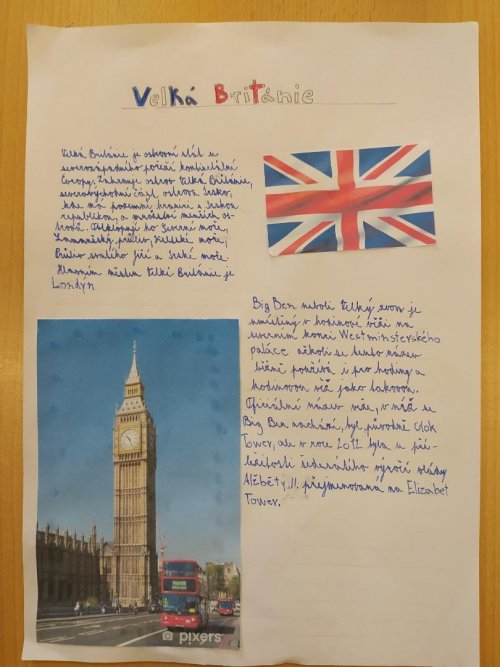 Velká Británie
Velká Británie je ostrovní stát u
severozápadního pobřeží kontinentální
Evropy. Zahrnuje ostrov Velká Británie,
severovýchodní část ostrova Irsko,
kde má pozemní hranici s Irskou
republikou, a množství menších os-
trovů. Obklopují ho Severní moře,
Lamanšský průliv, Keltské moře,
Průliv svatého Jiří a Irské moře.
Hlavním městem Velké Británie je
Londýn
Big Ben neboli Velký zvon je
umístěný v hodinové věži na
severním konci Westminsterského
paláce ačkoli se tento název
běžně používá i pro hodiny a
hodinovou věž jako takovou.
Oficiální název věže, v níž se
Big Ben nachází, byl původně Clok
Tower, ale v roce 2012 byla u pří-
ležitosti šedesátého výročí vlády
Alžběty II. přejmenována na Elizabet
Tower.
pixers